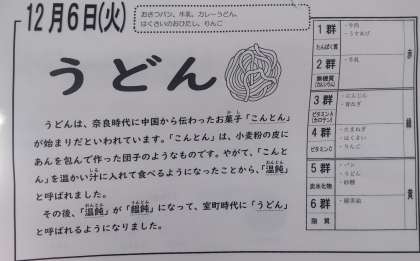 12月6日(火)
おきつパン、牛乳、カレーうどん、
はくさいのおひたし、りんご
うどん
うどんは、奈良時代に中国から伝わったお菓子「こんとん」
が始まりだといわれています。「こんとん」は、小麦粉の皮に
あんを包んで作った団子のようなものです。やがて、「こんと
ん」を温かい汁に入れて食べるようになったことから、「温飩」
と呼ばれました。
その後、「温飩」が「饂飩」になって、室町時代に「うどん」
と呼ばれるようになりました。
1群
たんぱく質
・牛肉
・うすあげ
2群
無機質
(カルシウム)
・牛乳
3群
ビタミンA
(カロテン)
・にんじん
・青ねぎ
4群
ビタミンC
・たまねぎ
・はくさい
・りんご
5群
炭水化物
・パン
・うどん
・砂糖
6群
脂質
赤
緑
黄